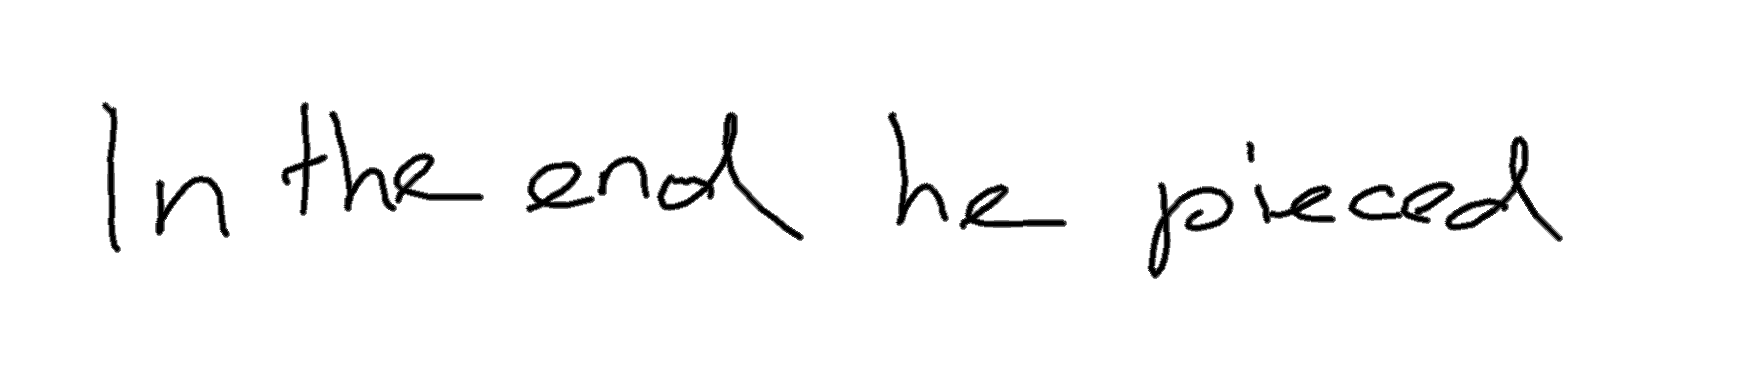 In the end he pieced